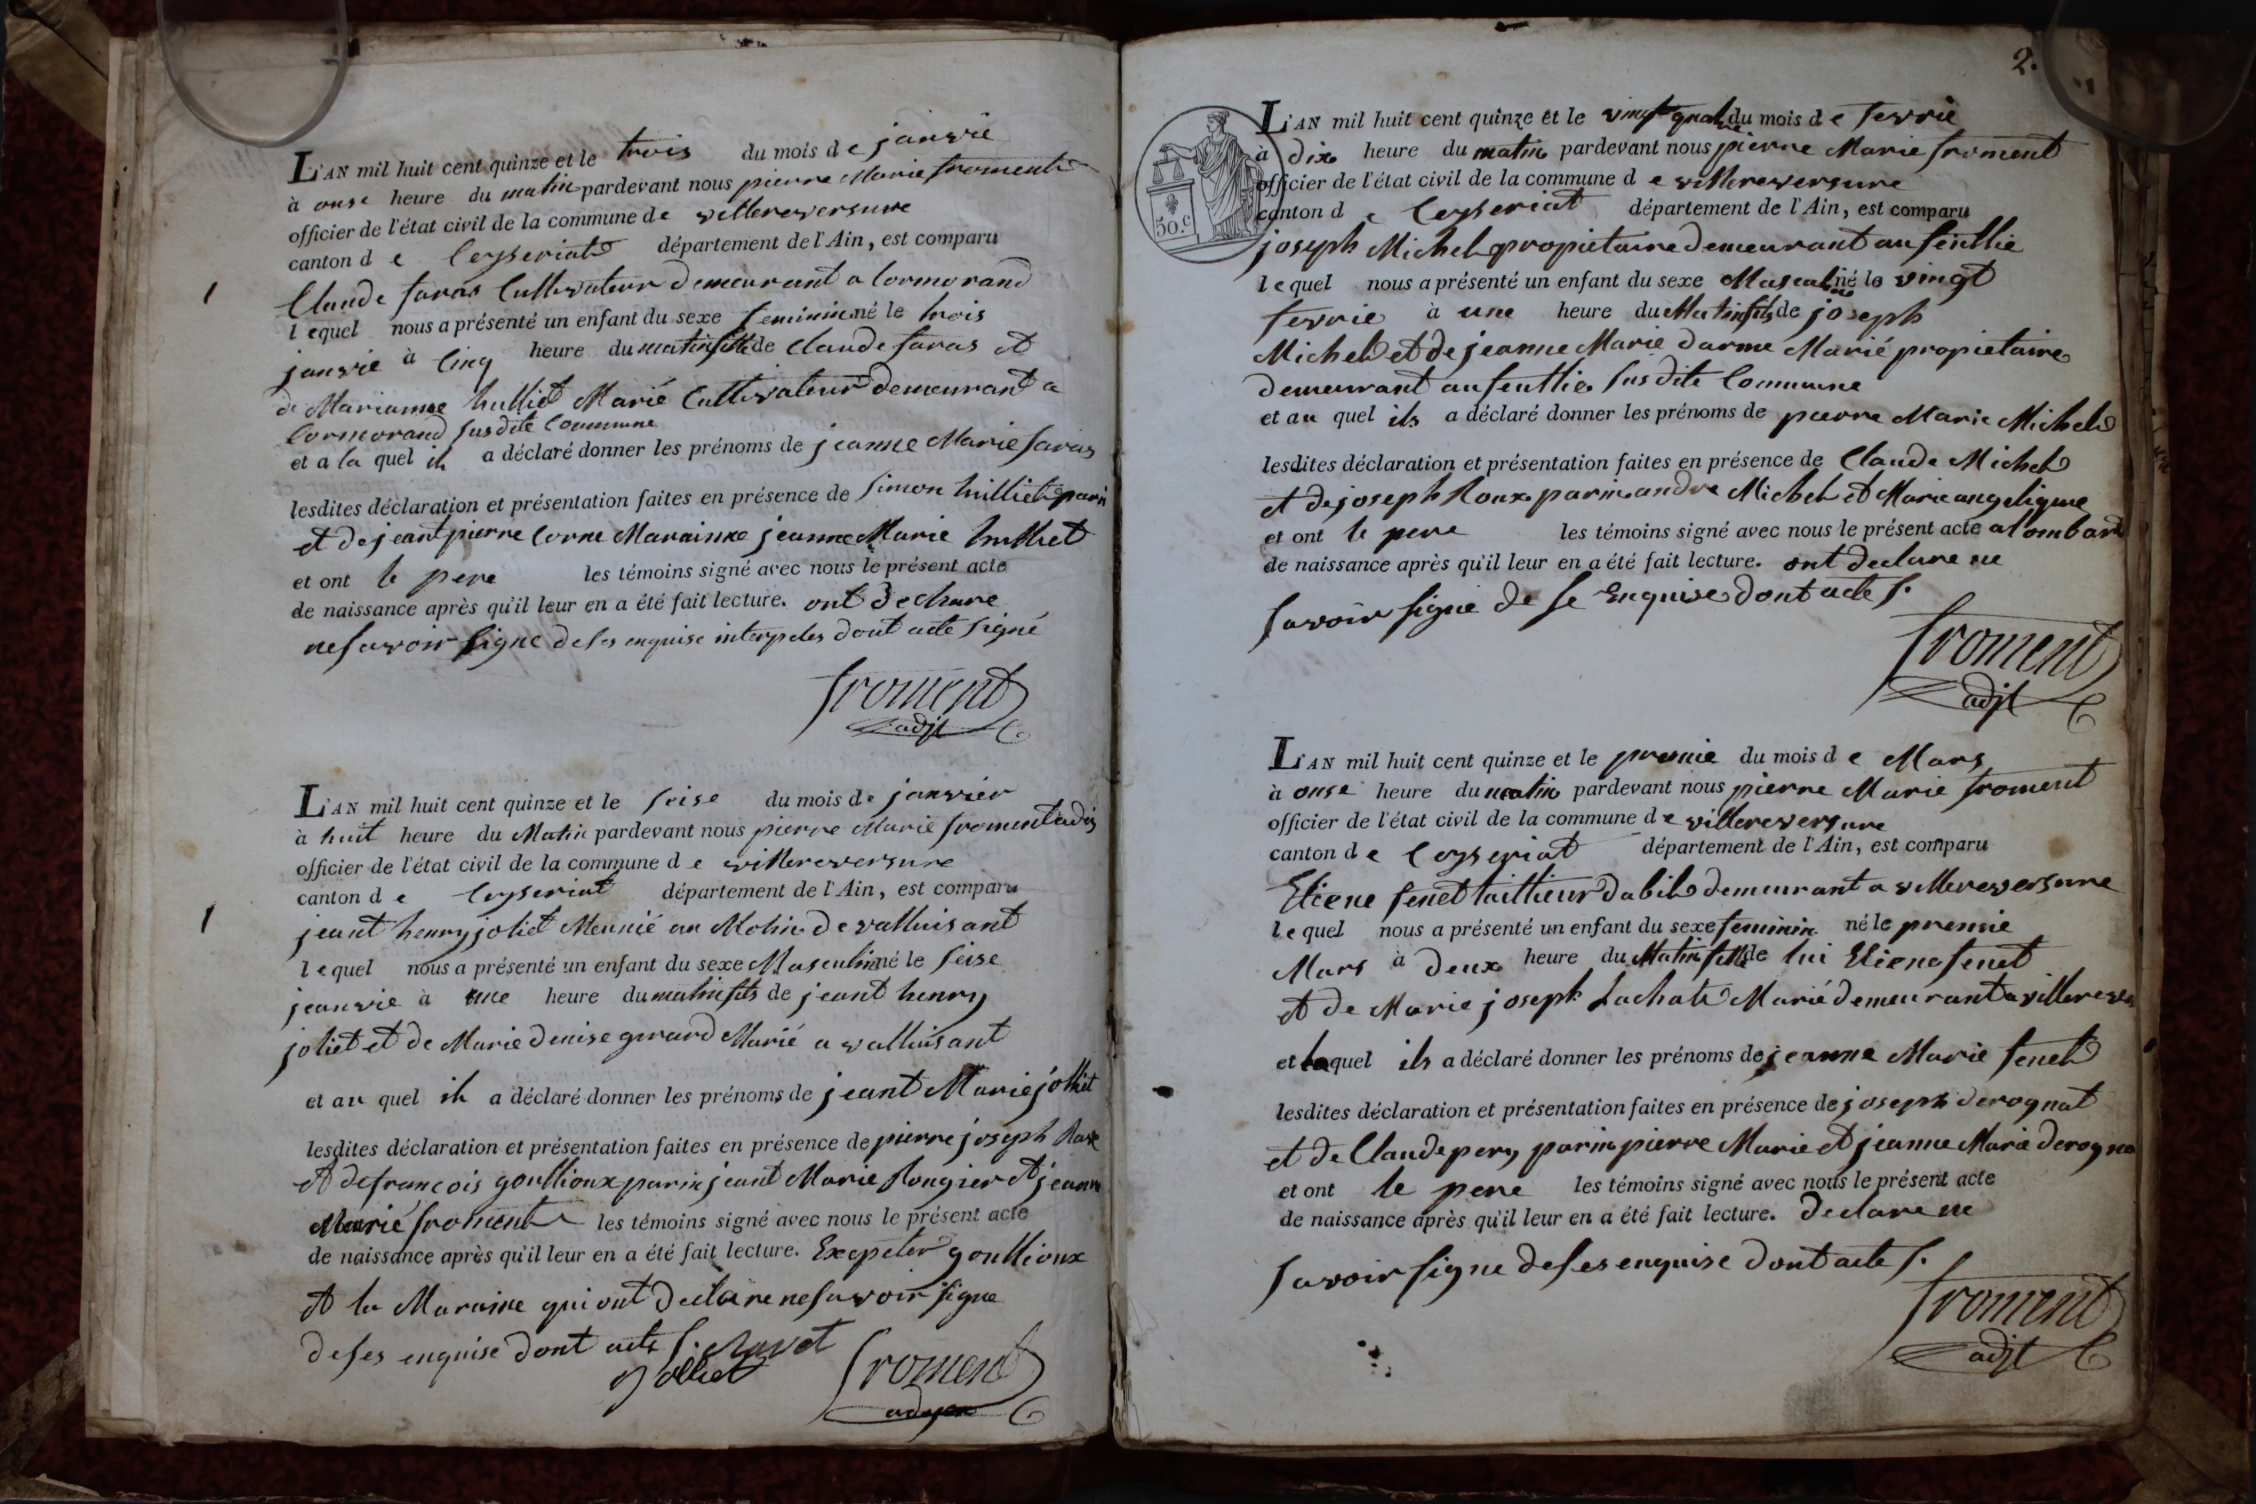 L'AN mil huit cent quinze et le trois du mois de janvie
à onse heure du matin pardevant nous pierre Marie froment
officier de l'état civil de la commune de villereversure
canton de Ceyseriat département de l'Ain, est comparu
Claude faras Cultivateur demeurant a Cormorand
lequel nous a présenté un enfant du sexe feminin né le trois
janvie à Cinq heure du matin fille de Claude faras et
de Marianne hulliet Marié Cultivateur demeurant a
Cormorand susdite Commune
et a la quel ils a déclaré donner les prénoms de jeanne Marie faras
lesdites déclaration et présentation faites en présence de Simon hulliet parin
et de jeant pierre Corne Marainne jeanne Marie hulliet
et ont le pere les témoins signé avec nous le présent acte
de naissance après qu'il leur en a été fait lecture. ont declare
ne savoir signe de ses enquise interpeles dont acte signé
froment
adjt
1
L'AN mil huit cent quinze et le seise du mois de janvier
à huit heure du Matin pardevant nous pierre Marie froment
officier de l'état civil de la commune de villereversure
canton de Ceyseriat département de l'Ain, est comparu
jeant henry joliet Meunié au Molin de valluisant
lequel nous a présenté un enfant du sexe Masculin né le seise
jeanvie à une heure du matin fils de jeant henry
joliet et de Marie denise girard Marié a valluisant
et au quel ils a déclaré donner les prénoms de jeant Marie jolliet
lesdites déclaration et présentation faites en présence de pierre joseph
et de francois goullioux parin jeant Marie Rougier et jeanne
Marié froment les témoins signé avec nous le présent acte
de naissance après qu'il leur en a été fait lecture. Exepeter goullioux
et la Maraine qui ont declare ne savoir signe
de ses enquise dont acte S. Ravet
Jolliet
froment
1
2.
50.c
L'AN mil huit cent quinze et le vingt quatre du mois de fevrie
à dix heure du matin pardevant nous pierre Marie froment
officier de l'état civil de la commune de villereversure
canton de Ceyseriat département de l'Ain, est comparu
joseph Michel propietaire demeurant au feullie
lequel nous a présenté un enfant du sexe Masculin né le vingt
fevrie à une heure du Matin fils de joseph
Michel et de jeanne Marie darme Marié propietaire
demeurant au feullie susdite Commune
et au quel ils a déclaré donner les prénoms de pierre Marie Michel
lesdites déclaration et présentation faites en présence de Claude Michel
et de joseph Roux parin andre Michel et Marie angelique
et ont le pere les témoins signé avec nous le présent acte alombard
de naissance après qu'il leur en a été fait lecture. ont declare ne
savoir signe de se Enquise dont acte S.
froment
adjt
L'AN mil huit cent quinze et le premie du mois de Mars
à onse heure du matin pardevant nous pierre Marie froment
officier de l'état civil de la commune de villereversure
canton de Ceyseriat département de l'Ain, est comparu
Etiene fenet taillieur dabil demeurant a villereversure
lequel nous a présenté un enfant du sexe feminin né le premie
Mars à deux heure du Matin fille de lui Etiene fenet
et de Marie joseph Lachat Marié demeurant a villerever
et laquel ils a déclaré donner les prénoms de jeanne Marie fenet
lesdites déclaration et présentation faites en présence de joseph derognat
et de Claude pery parin pierre Marie et jeanne Marie derogna
et ont le pere les témoins signé avec nous le présent acte
de naissance après qu'il leur en a été fait lecture. declare ne
savoir signe de ses enquise dont acte S.
froment
adjt